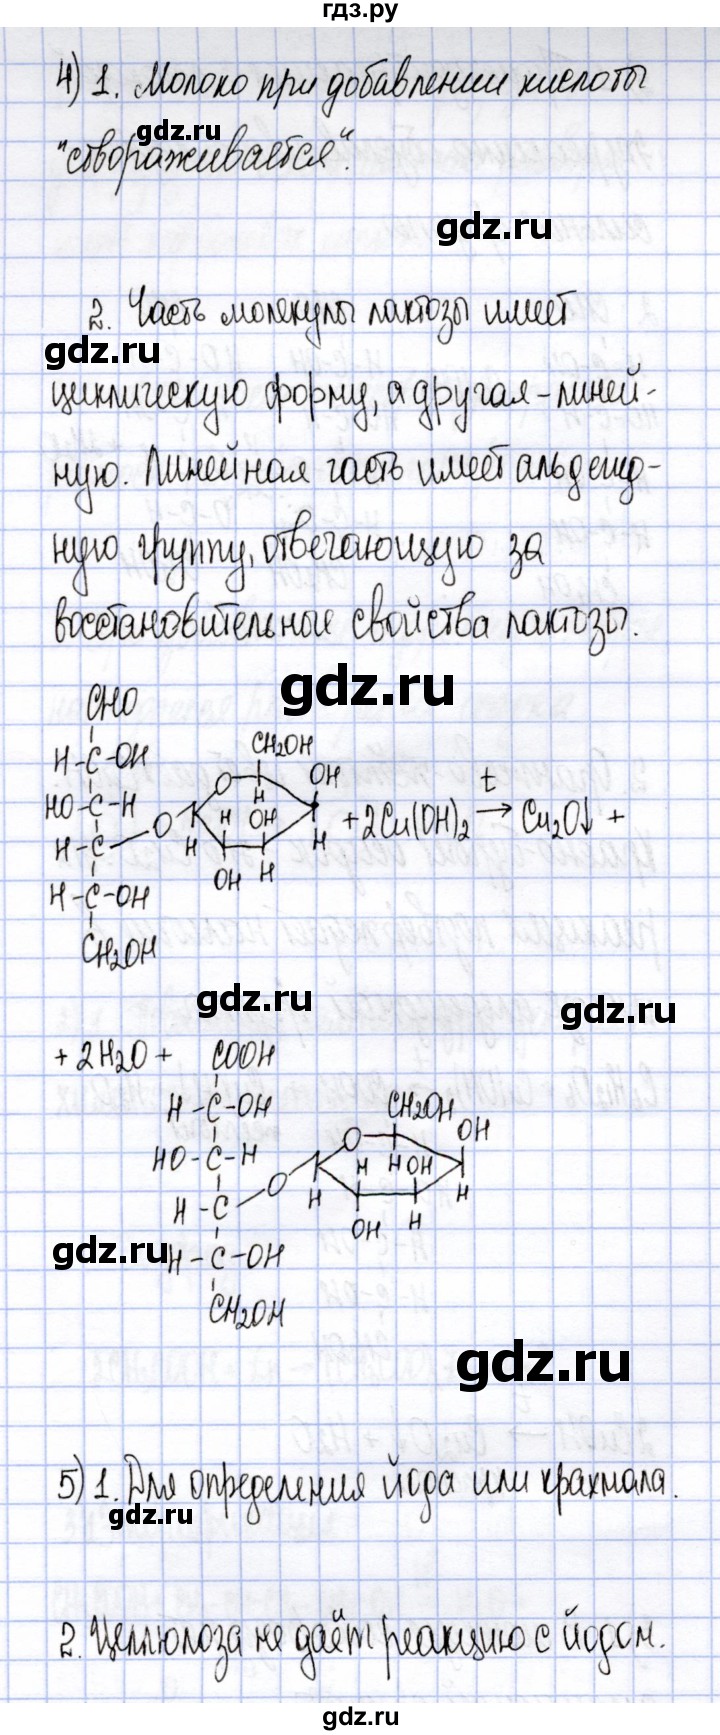 гдз.ру
4) 1. Молоко при добавлении кислоты
gdz.ru
"створаживается".
gdz.ru
2. Часть молекулы лактозы имеет
gdz.ru
циклическую форму, а другая - линей-
ную. Линейная часть имеет альдегид-
ную группу, отвечающую за
восстановительные свойства лактозы.
gdz.ru
CHO
H-C-OH
HO-C-H
H-C-
H-C-OH
CH2OH
O
O
CH2OH
H
OH
H
OH
H
OH
H
H
+2Cu(OH)2 t → Cu2O↓ +
gdz.ru
gdz.ru
+ 2H2O +
COOH
H-C-OH
HO-C-H
H-C
H-C-OH
CH2OH
O
O
CH2OH
H
OH
H
OH
H
OH
H
H
gdz.ru
gdz.ru
5) 1. Для определения йода или крахмала.
gdz.ru
2. Целлюлоза не даёт реакцию с йодом.
gdz.ru